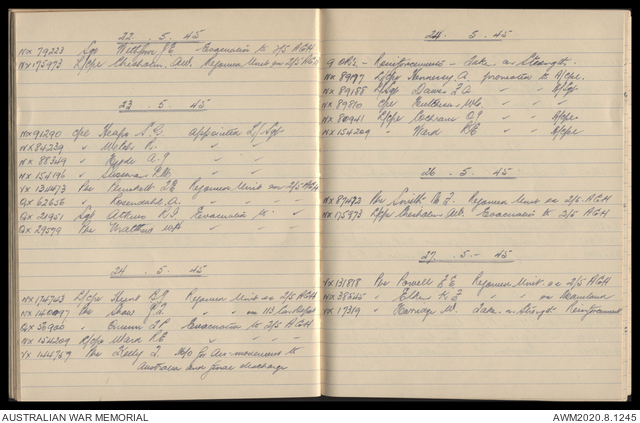 22 . 5 . 45
NX 79223 Sgt J.E. Evacuation to 2/5 AGH
NX 175973 L/Cpl Chisholm A.W. Rejoined Unit ex 2/5 AGH
23 . 5 . 45
NX 91290 Cpl Heaps S.R. appointed L/Sgt
NX 84239 " R. " "
NX 88349 " Hyde A.J " "
NX 154196 " " "
VX 134473 Pte J.E Rejoined Unit ex 2/5 AGH
QX 62656 " Rosendahl A. " " "
QX 21951 Sgt Atkins R.J. Evacuation to "
QX 29579 Pte Watkins "
24 . 5 . 45
NX 174743 L/Cpl Rejoined Unit ex 2/5 AGH
NX 140097 Pte Shaw " " ex 113
QX 56920 " Quinn Evacuation to 2/5 AGH
NX 154209 L/Cpl Ward R.E " " "
VX 144769 Pte Kelly J. for Air-movement to
Australia and final discharge
24 . 5 . 45
9 ORs - Reinforcements - taken on Strength.
NX 89197 L/Cpl Hennessy A. promoted to A/Cpl.
NX 89188 L/Sgt Davis " " A/Sgt
NX 89810 Cpl " "
NX 80941 L/Cpl Cochran O.J " " A/Cpl
NX 154209 " Ward R.E " " A/Cpl
26 . 5 . 45
VX 87472 Pte Smith Rejoined Unit ex 2/5 AGH
NX 175973 L/Cpl Chisholm A.W. Evacuation to 2/5 AGH
27 . 5 - 45
VX 131878 Pte Powell Rejoined Unit ex 2/5 AGH
NX 38545 " " " ex Mainland
VX 17319 " M. Taken on Strength Reinforcement
AUSTRALIAN WAR MEMORIAL
AWM2020.8.1245